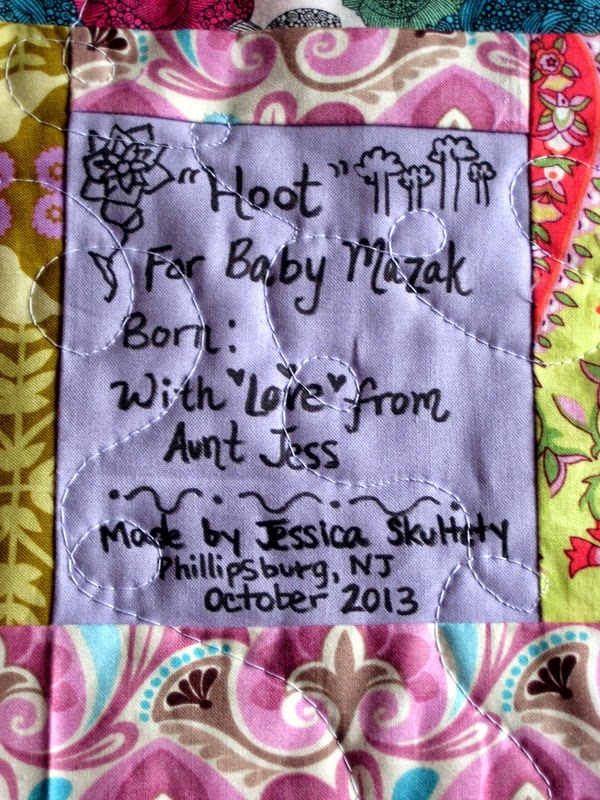 "Hoot"
For Baby Mazak
Born:
With "Love" from
Aunt Jess
Made by Jessica Skultety
Phillipsburg, NJ
October 2013